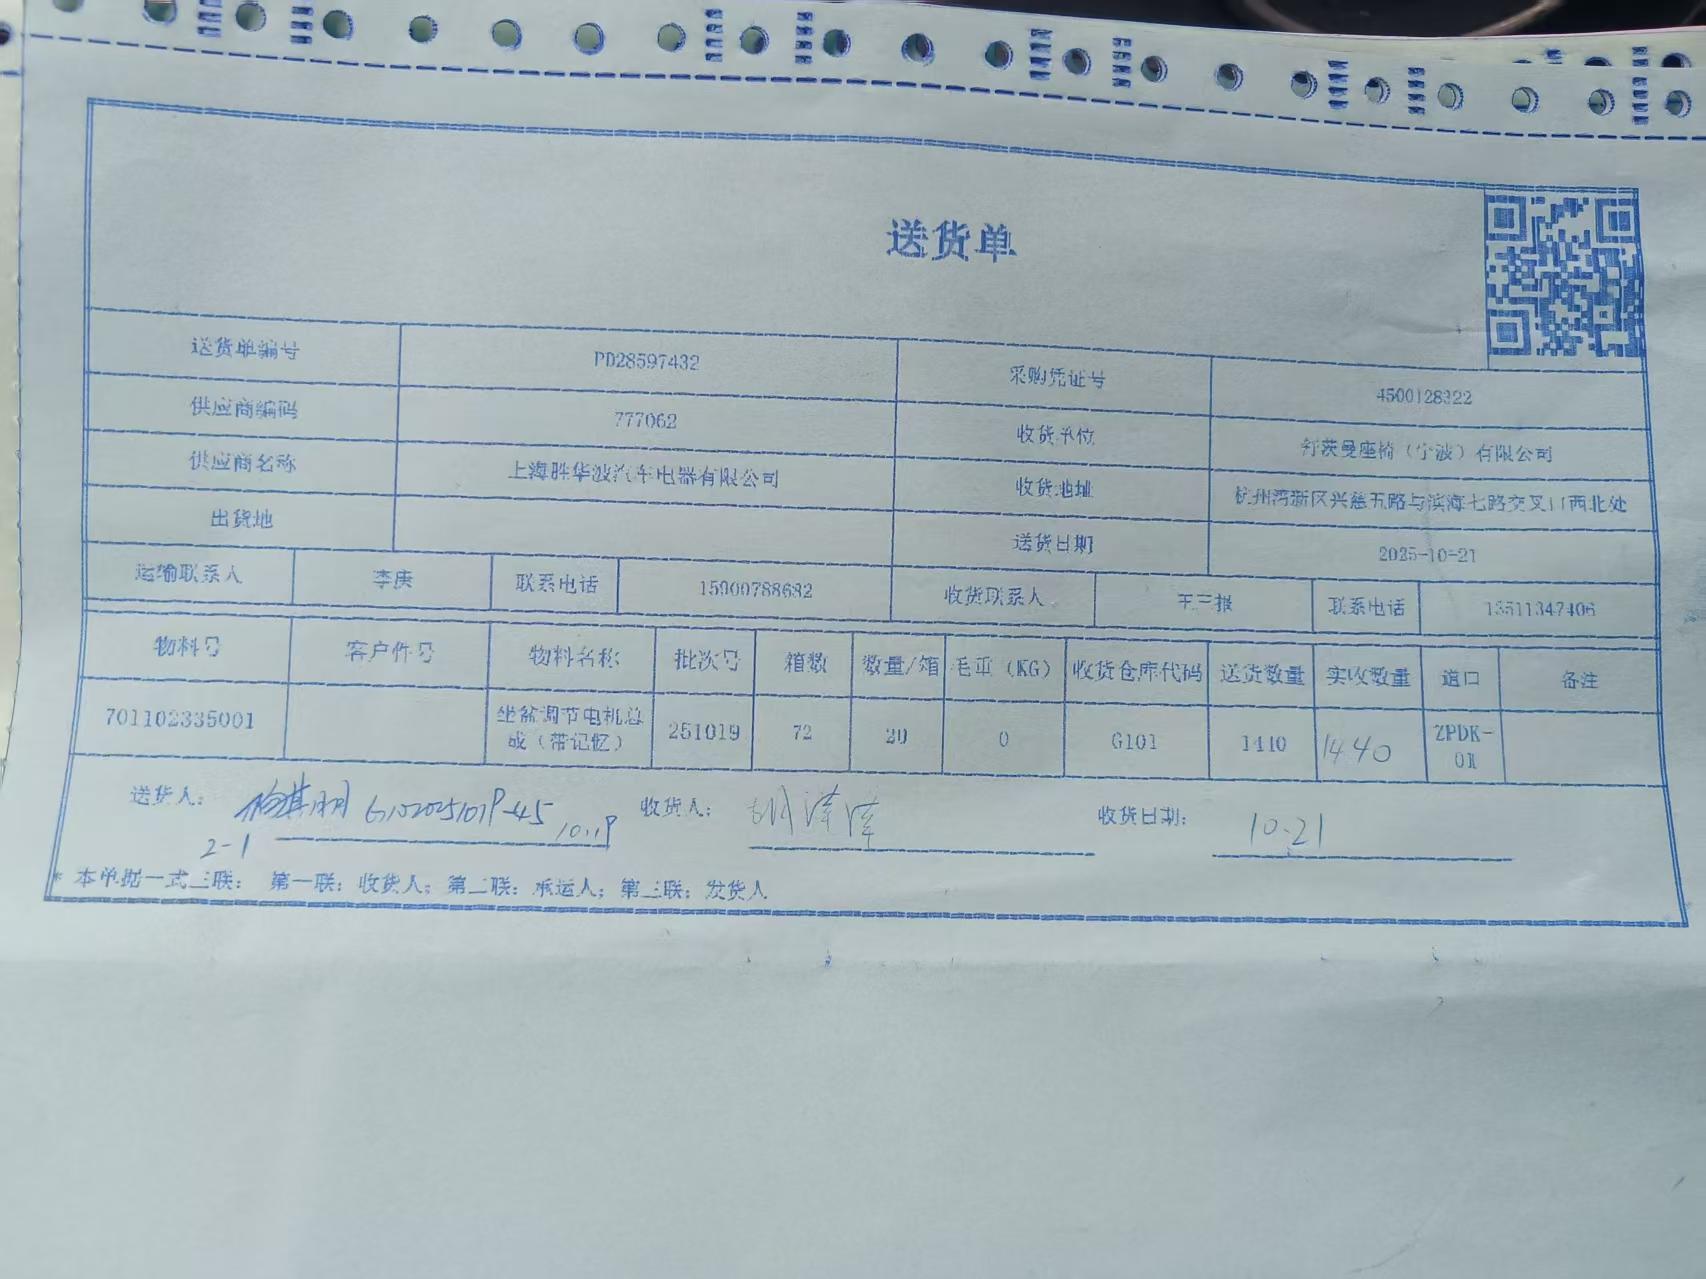 送货单
送货单编号 PD28597432 采购凭证号 4500128322
供应商编码 777062 收货单位 舒茨曼座椅（宁波）有限公司
供应商名称 上海胜华波汽车电器有限公司 收货地址 杭州湾新区兴慈五路与滨海七路交叉口西北处
出货地 送货日期 2025-10-21
运输联系人 李庚 联系电话 15900788632 收货联系人 联系电话 13511347406
物料号 客户件号 物料名称 批次号 箱数 数量/箱 毛重（KG） 收货仓库代码 送货数量 实收数量 道口 备注
701102335001 坐盆调节电机总 251019 72 20 0 G101 1440 1440 ZPDK-
成（带记忆）
送货人： 10.19 收货人： 收货日期： 10.21
2-1
* 本单据一式三联： 第一联：收货人；第二联：承运人；第三联：发货人